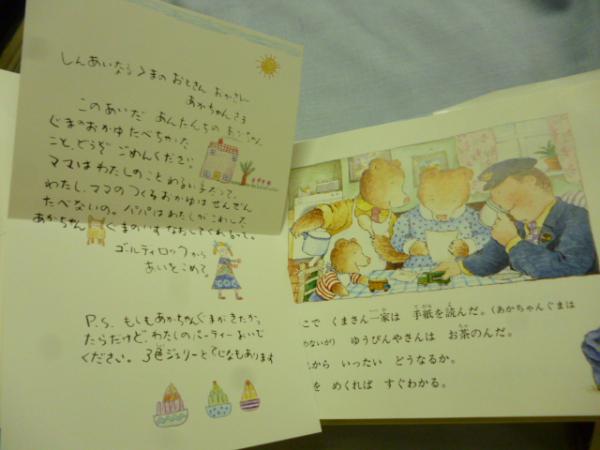 しんあいなる くまの おとさん おかさん
あかちゃんさま
このあいだ あんたんちの あかちゃん
ぐまのおかゆ たべちゃった
こと、どうぞ ごめんください。
ママは わたしのこと わるい子だって。
わたし、ママの つくるおかゆは ぜんぜん
たべないの。パパは わたしが こわした
あかちゃん ぐまのいす なおしてくれるって。
ゴルディロックから
あいをこめて
P.S. もしも あかちゃんぐまが きたかっ
たらだけど、わたしのパーティー おいで
ください。3色ジェリーと もあります
こで くまさん一家は 手紙を読んだ。(あかちゃんぐまは
めないが) ゆうびんやさんは お茶のんだ。
れから いったい どうなるか。
を めくれば すぐわかる。